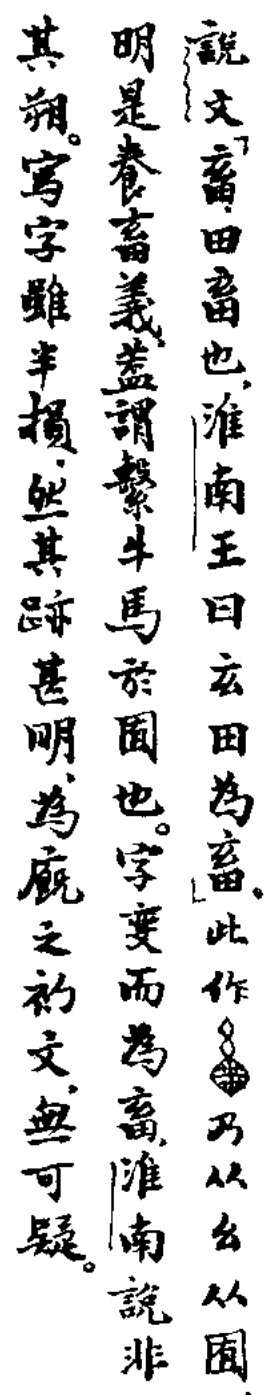 說文「畜，田畜也，淮南王曰玄田為畜」，此作乃从幺从囿，
明是養畜義，蓋謂繫牛馬於囿也。字變而為畜，淮南說非
其朔。寫字雖半損，然其跡甚明，為廐之初文，無可疑。